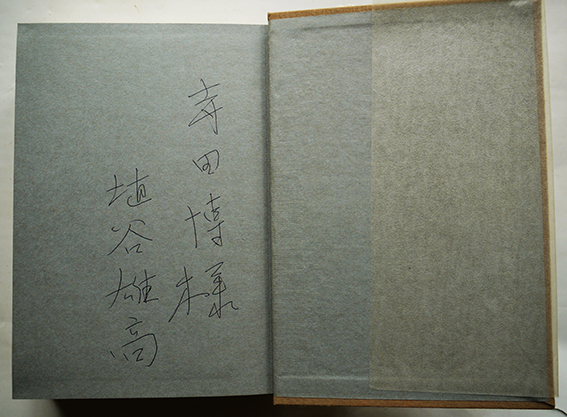 寺田博様
埴谷雄高